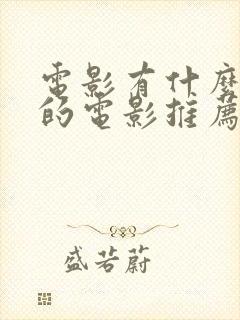 電影有什麼
的電影推薦
盛若蔚